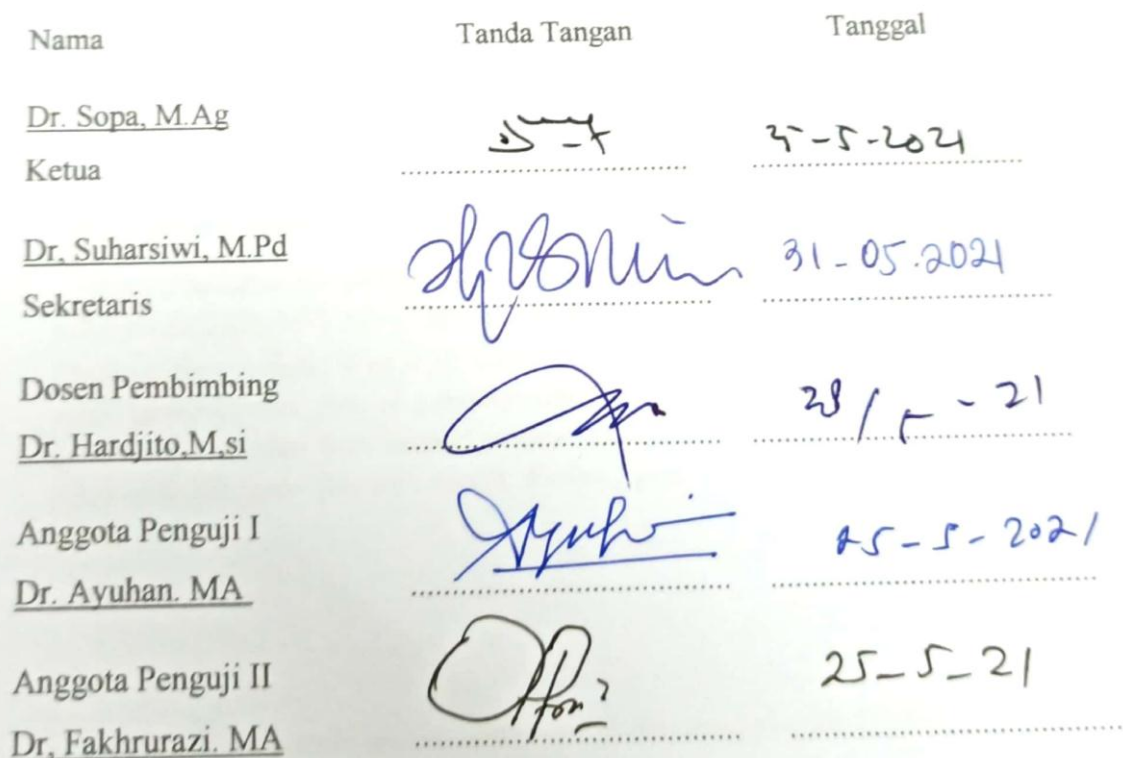 Nama Tanda Tangan Tanggal
Dr. Sopa, M.Ag
Ketua -5-2021
Dr, Suharsiwi, M.Pd
Sekretaris 31-05.2021
Dosen Pembimbing
Dr. Hardjito,M,si
Anggota Penguji I
Dr. Ayuhan. MA 25-5-2021
Anggota Penguji II 25-5-21
Dr, Fakhrurazi. MA